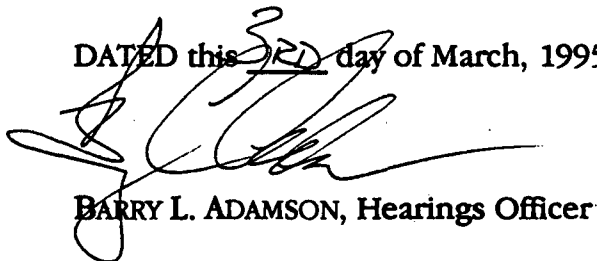 DATED this 3RD day of March, 1995
BARRY L. ADAMSON, Hearings Officer